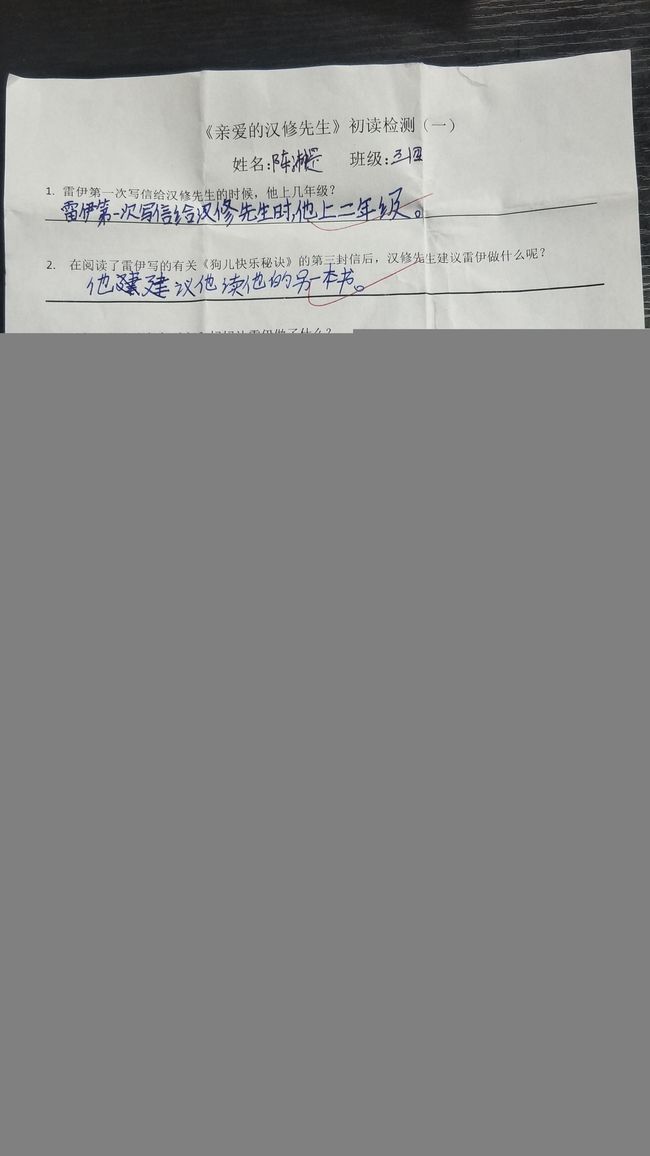 《亲爱的汉修先生》初读检测（一）
姓名:陈 班级:三四
1. 雷伊第一次写信给汉修先生的时候，他上几年级？
雷伊第一次写信给汉修先生时,他上二年级。
2. 在阅读了雷伊写的有关《狗儿快乐秘诀》的第三封信后，汉修先生建议雷伊做什么呢？
他建议他读他的另一本书。